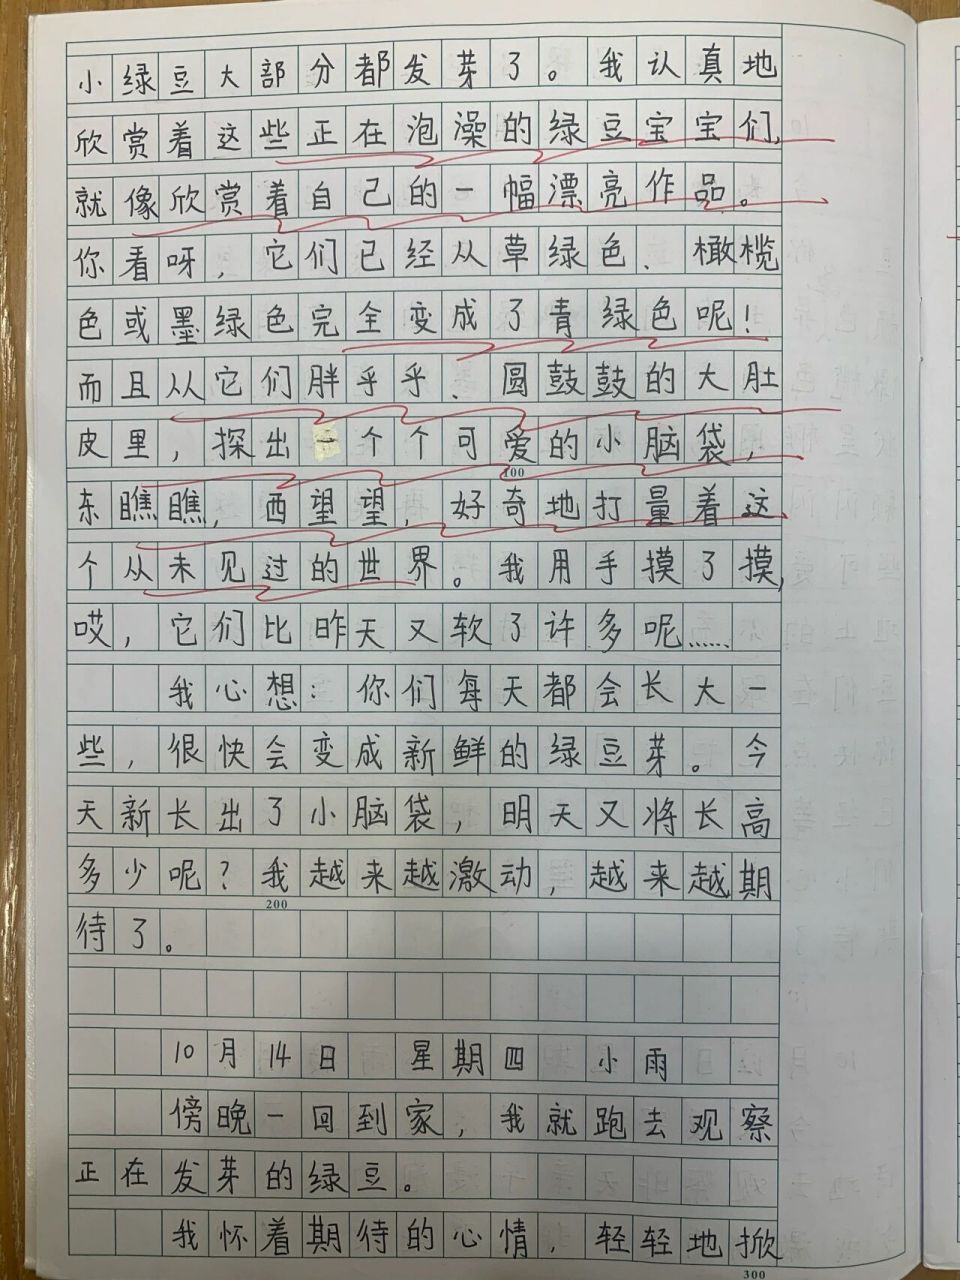 小绿豆大部分都发芽了。我认真地
欣赏着这些正在泡澡的绿豆宝宝们,
就像欣赏着自己的一幅漂亮作品。
你看呀,它们已经从草绿色、橄榄
色或墨绿色完全变成了青绿色呢!
而且从它们胖乎乎、圆鼓鼓的大肚
皮里,探出一个个可爱的小脑袋,
100
东瞧瞧,西望望,好奇地打量着这
个从未见过的世界。我用手摸了摸,
哎,它们比昨天又软了许多呢……
我心想:你们每天都会长大一
些,很快会变成新鲜的绿豆芽。今
天新长出了小脑袋,明天又将长高
多少呢?我越来越激动,越来越期
200
待了。
10月14日 星期四 小雨
傍晚一回到家,我就跑去观察
正在发芽的绿豆。
我怀着期待的心情,轻轻地掀
300